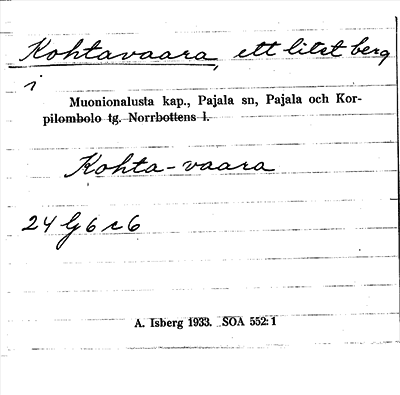 Kohtavaara, ett litet berg
i
Muonionalusta kap., Pajala sn, Pajala och Kor-
pilombolo tg. Norrbottens l.
Kohta-vaara
24 G 6 c 6
A. Isberg 1933. SOA 552: 1